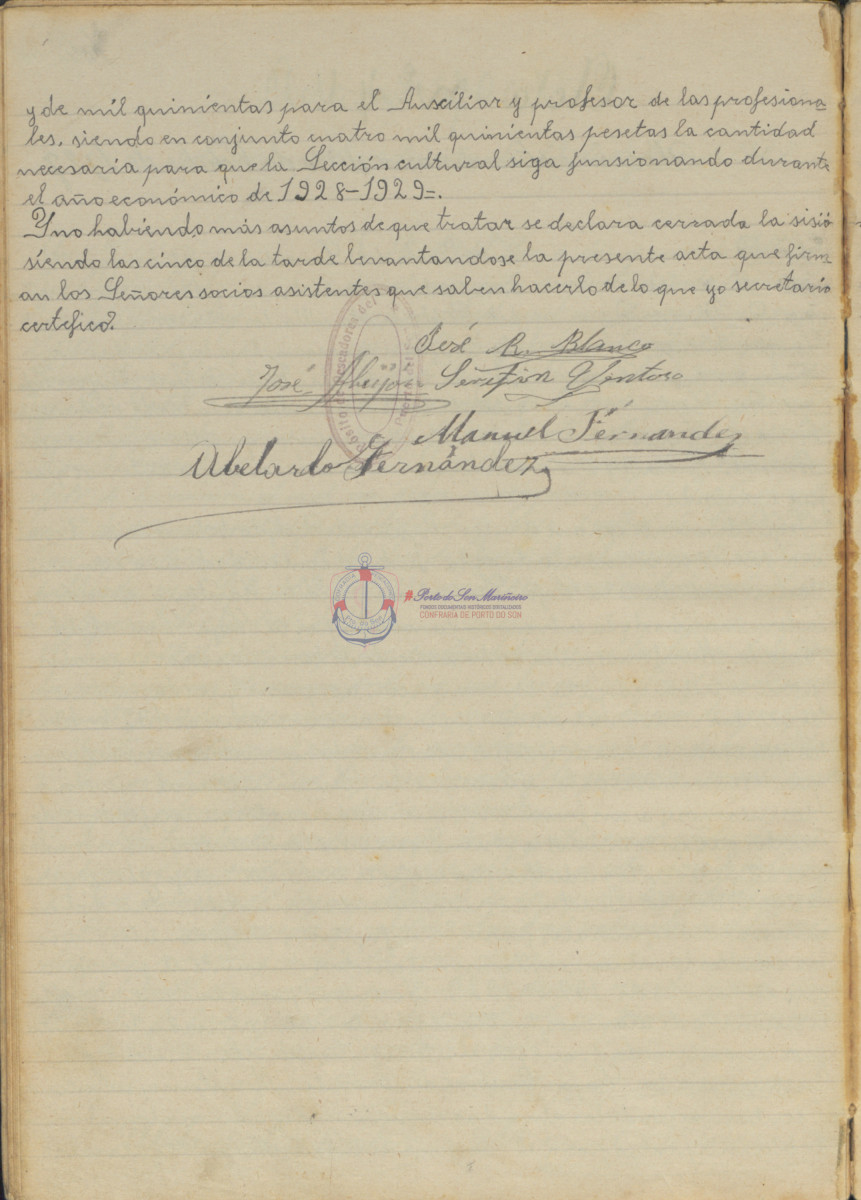 y de mil quinientas para el Auxiliar y profesor de las profesiona
les, siendo en conjunto cuatro mil quinientas pesetas la cantidad
necesaria para que la Sección cultural siga funsionando durante
el año económico de 1928-1929=.
Y no habiendo más asuntos de que tratar se declara cerzada la sisió
siendo las cinco de la tarde levantandose la presente acta que firm
an los Señores socios asistentes que saben hacerlo de lo que yo secretario
certefico.
José R. Blanco
José Abeijón Serafin Ventoso
Manuel Fernandez
Abelardo Fernández
Pósito de Pescadores de
#Porto do Son Mariñeiro
FONDOS DOCUMENTAIS HISTÓRICOS DIXITALIZADOS
CONFRARÍA DE PORTO DO SON